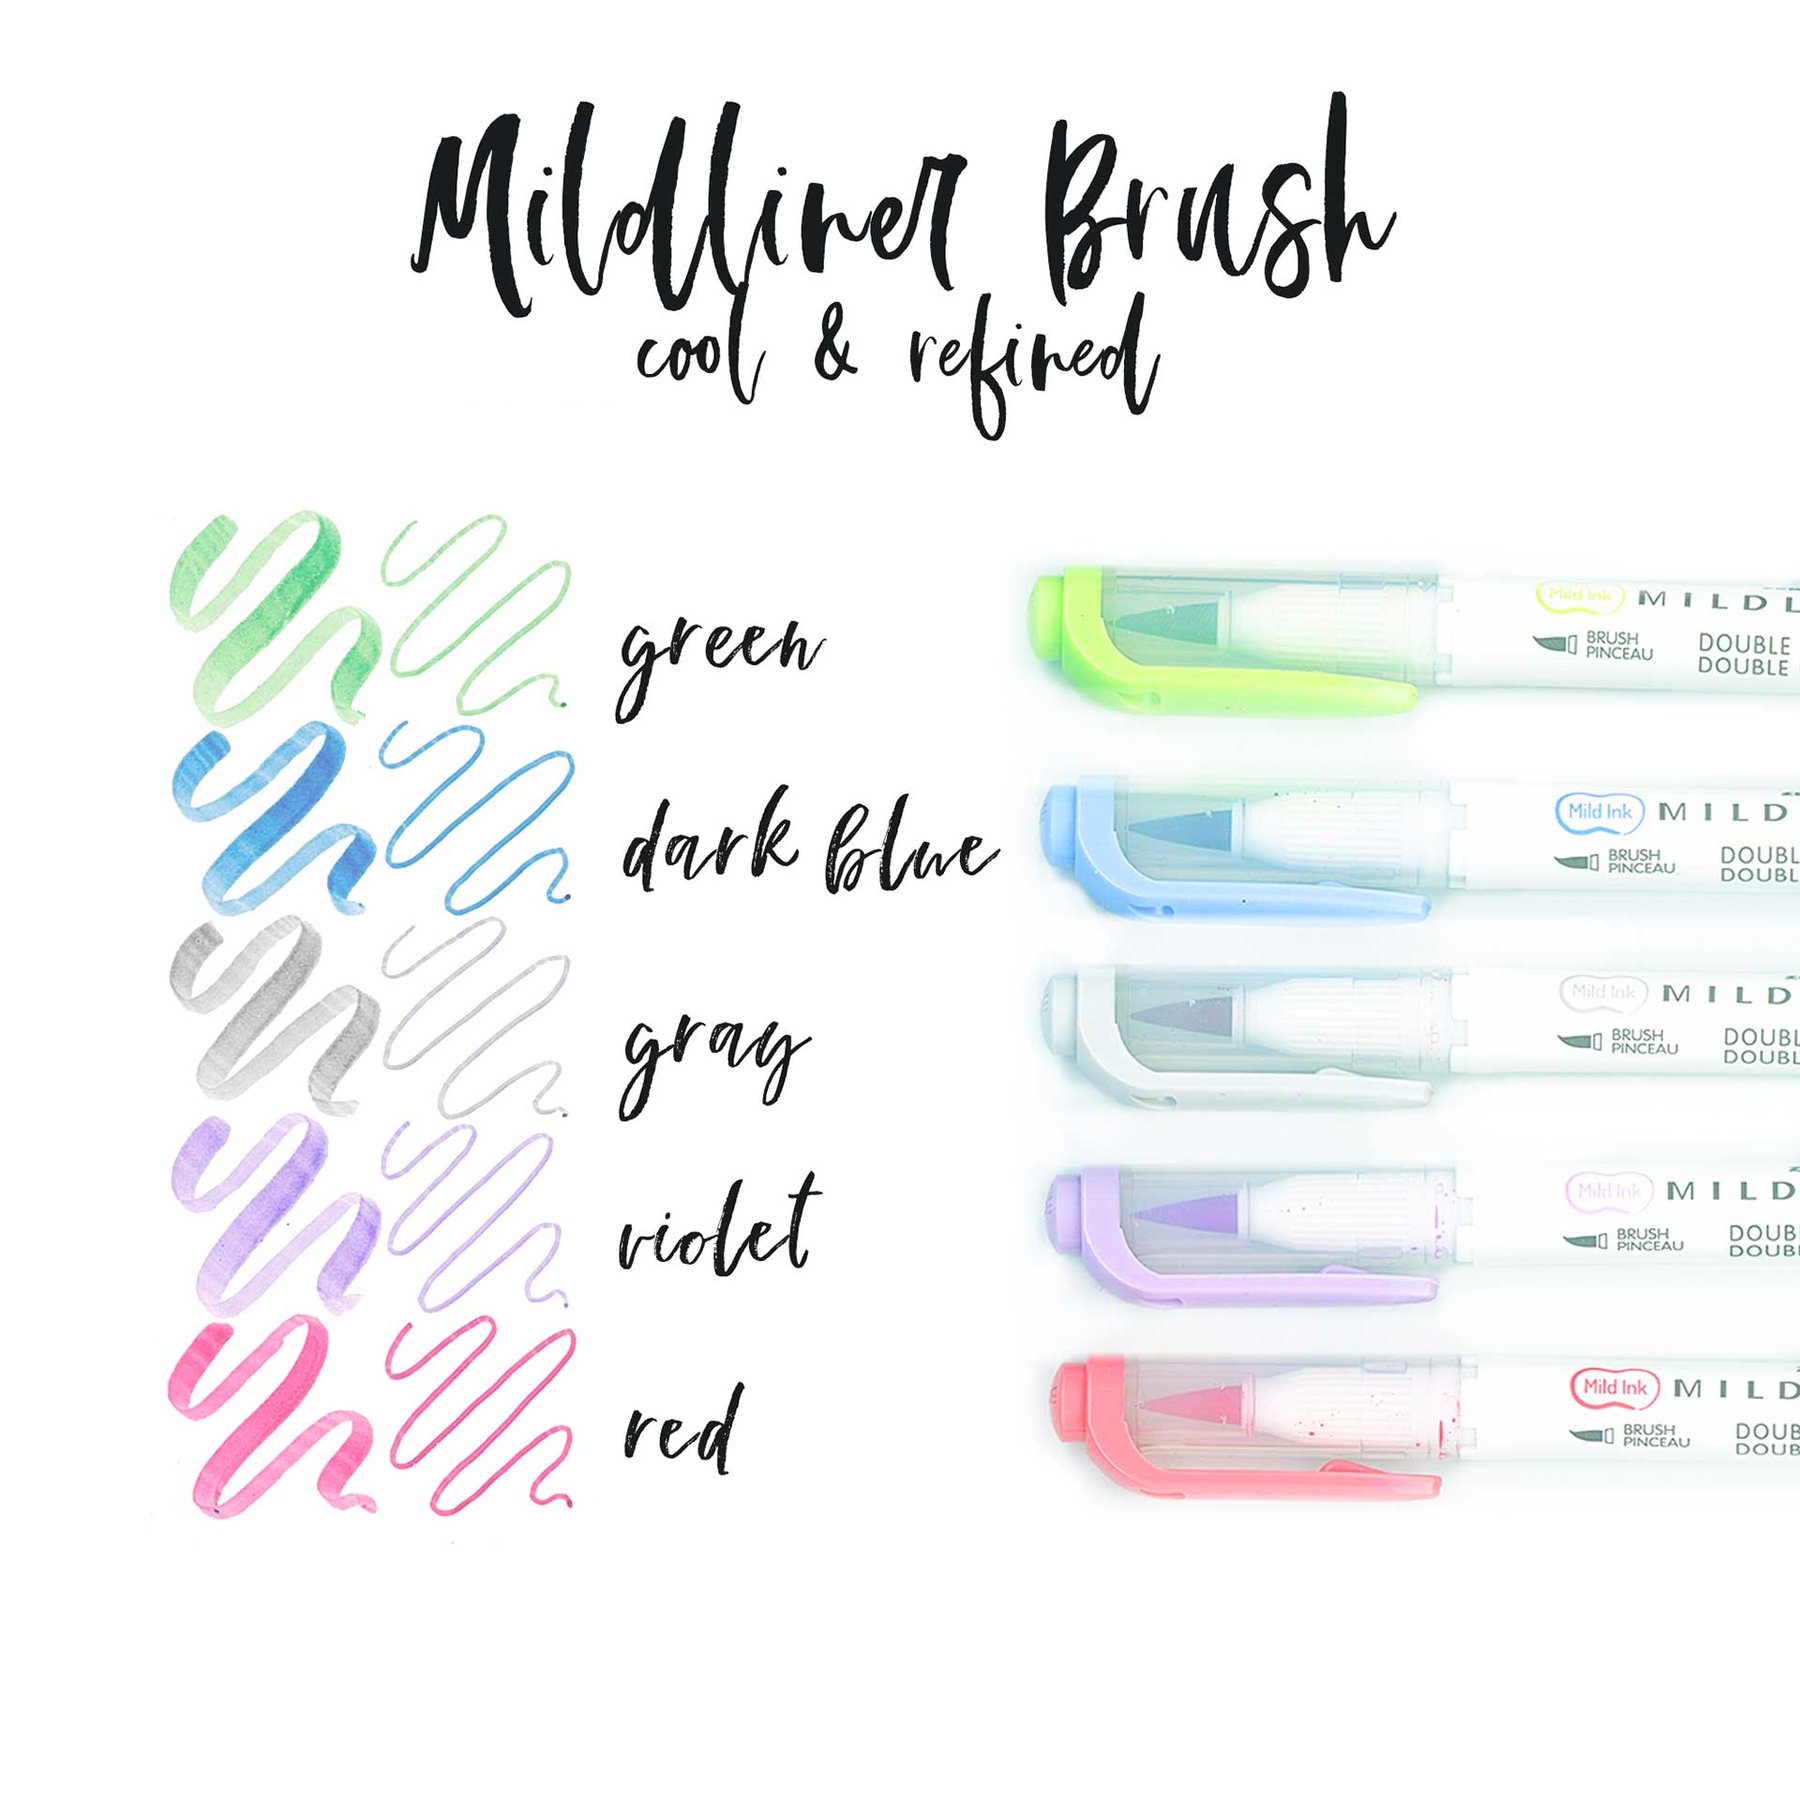 Mildliner Brush
cool & refined
green
dark blue
gray
violet
red
Mild Ink MILDL
BRUSH PINCEAU
DOUBLE
DOUBLE
Mild Ink MILD
BRUSH PINCEAU
DOUBL
DOUBL
Mild Ink MILD
BRUSH PINCEAU
DOUBL
DOUBL
Mild Ink MILD
BRUSH PINCEAU
DOUB
DOUB
Mild Ink MILD
BRUSH PINCEAU
DOUB
DOUB